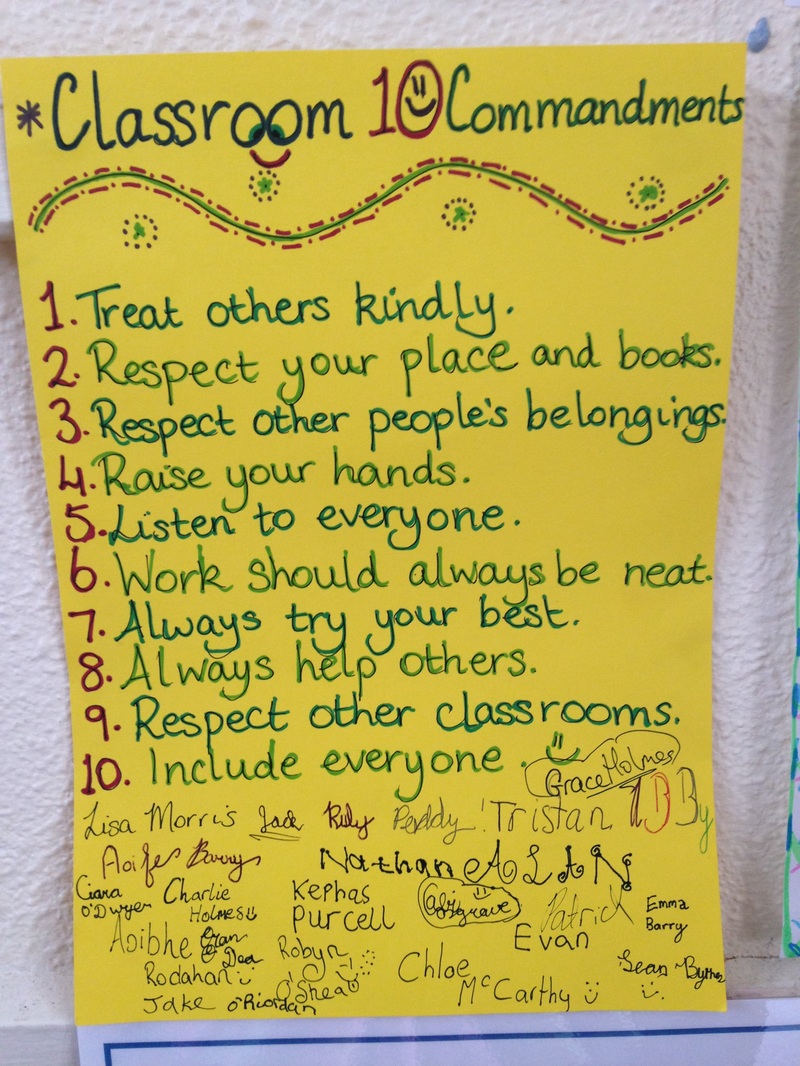 * Classroom 10 Commandments
1. Treat others kindly.
2. Respect your place and books.
3. Respect other people's belongings.
4. Raise your hands.
5. Listen to everyone.
6. Work should always be neat.
7. Always try your best.
8. Always help others.
9. Respect other classrooms.
10. Include everyone.
Grace Holmes
Lisa Morris Jack Paddy Tristan
Aoife Barry Nathan ALAN
Ciara O'Dwyer
Charlie Holmes
Kephas Purcell
Cosgrave
Patrick
Emma Barry
Evan
Robyn O'Shea
Rodahan
Chloe McCarthy
Sean
Jake O'Riordan